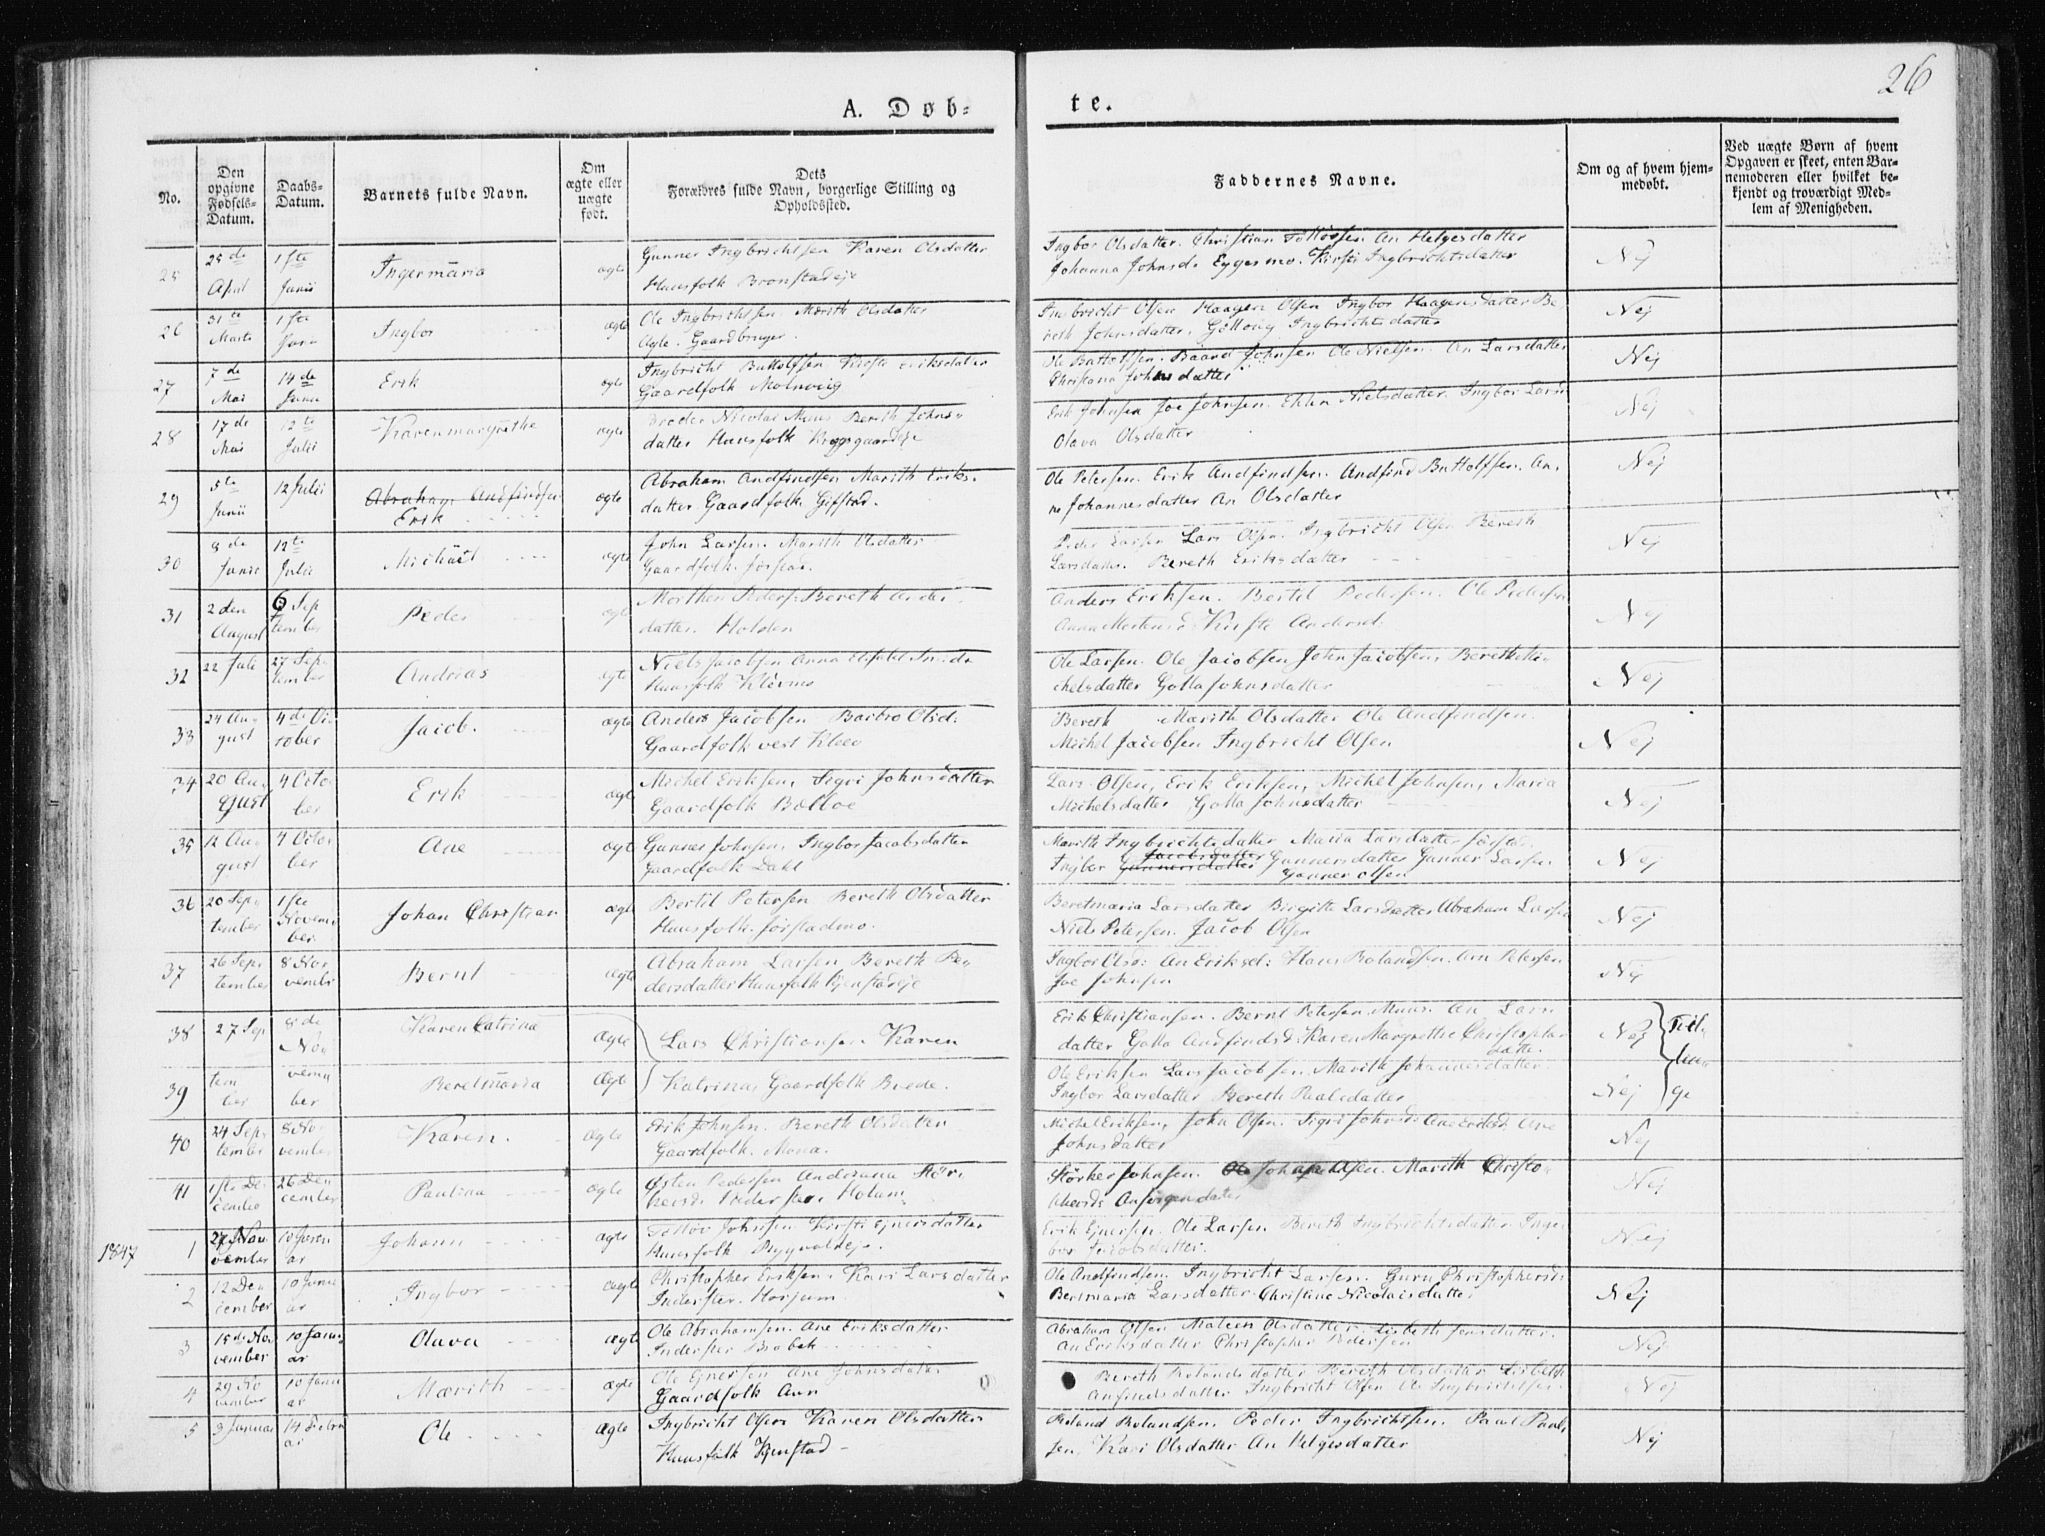 26
A. Døb-
te.
No.
Den opgivne Fødsels-Datum.
Daabs-Datum.
Barnets fulde Navn.
Om ægte eller uægte født.
Dets Forældres fulde Navn, borgerlige Stilling og Opholdssted.
Faddernes Navne.
Om og af hvem hjemmedøbt.
Ved uægte Børn af hvem Opgaven er skeet, enten Barnemoderen eller hvilket bekjendt og troværdigt Medlem af Menigheden.
25 25de April 1ste Junii Ingermaria ægte Gunner Ingbrichtsen Karen Olsdatter
Huusfolk
Ingbor Olsdatter. Christian An Helgesdatter
Johanna Johnsd. Eggesmo. Kirsti Ingbrichtsdatter
Nej
26 31te Marts 1ste Ingbor ægte Ole Ingbrichtsen Marith Olsdatter
Agle. Gaardbruger.
Ingbricht Olsen Haagen Olsen Ingbor Haagensdatter Be-
reth Johnsdatter. Ingbrichtsdatter
Nej
27 7de Mai 14de Junii Erik ægte Ingbricht Buttolfsen Kirsti Eriksdatter
Gaardfolk
Ole Buttolfsen. Baard Johnsen Ole Nielsen. An Larsdatter
Christiana Johnsdatter
Nej
28 17de Mai 12te Julii Karenmargrethe ægte Nicolai Muus Bereth Johns-
datter Huusfolk
Erik Johnsen Joe Johnsen. Nielsdatter. Ingbor Lars
Olava Olsdatter
Nej
29 5te Junii 12 Julii Abraham Andfindsen
Erik ægte Abraham Andfindsen Marith Eriks-
datter Gaardfolk Gifstad.
Ole Petersen. Erik Andfindsen. Andfind Buttolfsen. An-
ne Johannesdatter An Olsdatter
Nej
30 8de Junii 12te Julii Michael ægte John Larsen. Marith Olsdatter
Gaardfolk. Jørstad.
Peder Larsen Lars Olsen. Ingbricht Olsen Bereth
Larsdatter. Bereth Eriksdatter
Nej
31 2den August 6 September Peder ægte Morthen Peders. Bereth Anders-
datter. Holden
Anders Eriksen. Bertil Pedersen. Ole Pedersen
Anna Kirsti Andersd.
Nej
32 22 Juli 27 September Andrias ægte Niels Jacobsen Anna Elisabet
Huusfolk Klevmo
Ole Larsen. Ole Jacobsen John Jacobsen, Bereth Mi-
chelsdatter Golla Johnsdatter
Nej
33 24 August 4de October Jacob. ægte Anders Jacobsen Barbro Olsd.
Gaardfolk vest Kleev
Bereth Marith Olsdatter Ole Andfindsen.
Michel Jacobsen Ingbricht Olsen
Nej
34 20 August 4 October Erik ægte Michel Eriksen, Sigri Johnsdatter
Gaardfolk
Lars Olsen, Erik Eriksen, Michel Johnsen, Maria
Michelsdatter Golla Johnsdatter
Nej
35 12 August 4 October Ane ægte Gunner Johnsen, Ingbor Jacobsdatter
Gaardfolk Dahl
Marith Ingbrichtsdatter Maria Larsdatter
Ingbor Jacobsdatter Gunnersdatter Gunnersdatter Gunner Larsen
Gunner Olsen
Nej
36 20 September 1ste November Johan Christian ægte Bertil Petersen Bereth Olsdatter
Huusfolk. Jørstadmo.
Beretmaria Larsdatter Birgitte Larsdatter Abraham Larsen
Niels Petersen. Jacob Olsen
Nej
37 26 September 8 November Bernt ægte Abraham Larsen Bereth Pe-
dersdatter Huusfolk
Ingbor Olsd. An Eriksd: Hans Rolandsen. Arn Petersen
Joe Johnsen
Nej
38 27 Sep 8de No Karen Catrina ægte Lars Christiansen Karen
Erik Christiansen. Bernt Petersen Muus. An Lars-
datter Golla Andfindsd. Karen Margrethe Christopher
datter.
Nej Tvil-
39 tem ber vem ber Beretmaria ægte Katrina, Gaardfolk Brede.
Ole Eriksen Lars Jacobsen. Marith Johannesdatter
Ingbor Larsdatter Bereth Paalsdatter
Nej lin-
ge
40 24 September 8 November Karen. ægte Erik Johnsen. Bereth Olsdatter
Gaardfolk. Mona.
Michel Eriksen, John Olsen. Sigri Johnsd. Ane Eriksd. Ane
Johnsdatter
Nej
41 1ste December 26 December Paulina ægte Østen Pedersen Andrianna Stør-
kersd. Holum
Størker Johnsen. Ole Johan Olsen. Marith Christo-
phersd.
Nej
1847
1 27 November 10 Januar Johann ægte Johnsen Kirsti Ejnersdatter
Huusfolk
Erik Ejnersen. Ole Larsen Bereth Ingbrichtsdatter Ing-
bor Jacobsdatter.
Nej
2 12 December 10 Januar Ingbor ægte Christopher Eriksen. Kari Larsdatter
Inderster.
Ole Andfindsen. Ingbricht Larsen. Guru Christophersd.
Beretmaria Larsdatter. Christine Nicolaisdatter
Nej
3 15de November 10 Januar Olava ægte Ole Abrahamsen. Ane Eriksdatter
Inderster
Abraham Olsen Maleen Olsdatter. Lisbeth Jonsdatter.
An Eriksdatter Christopher Pedersen
Nej
4 29 November 10 Januar Marith ægte Ole Ejnersen Ane Johnsdatter
Gaardfolk Aun
Bereth Rolandsdatter Bereth Olsdatter Lisbeth
Anfindsdatter Ingbricht Olsen Ole Ingbrichtsen.
Nej
5 3 Januar 14 Februar Ole ægte Ingbricht Olsen Karen Olsdatter
Huusfolk
Roland Rolandsen. Peder Ingbrichtsen. Paal Paal-
sen. Kari Olsdatter An Helgesdatter
Nej